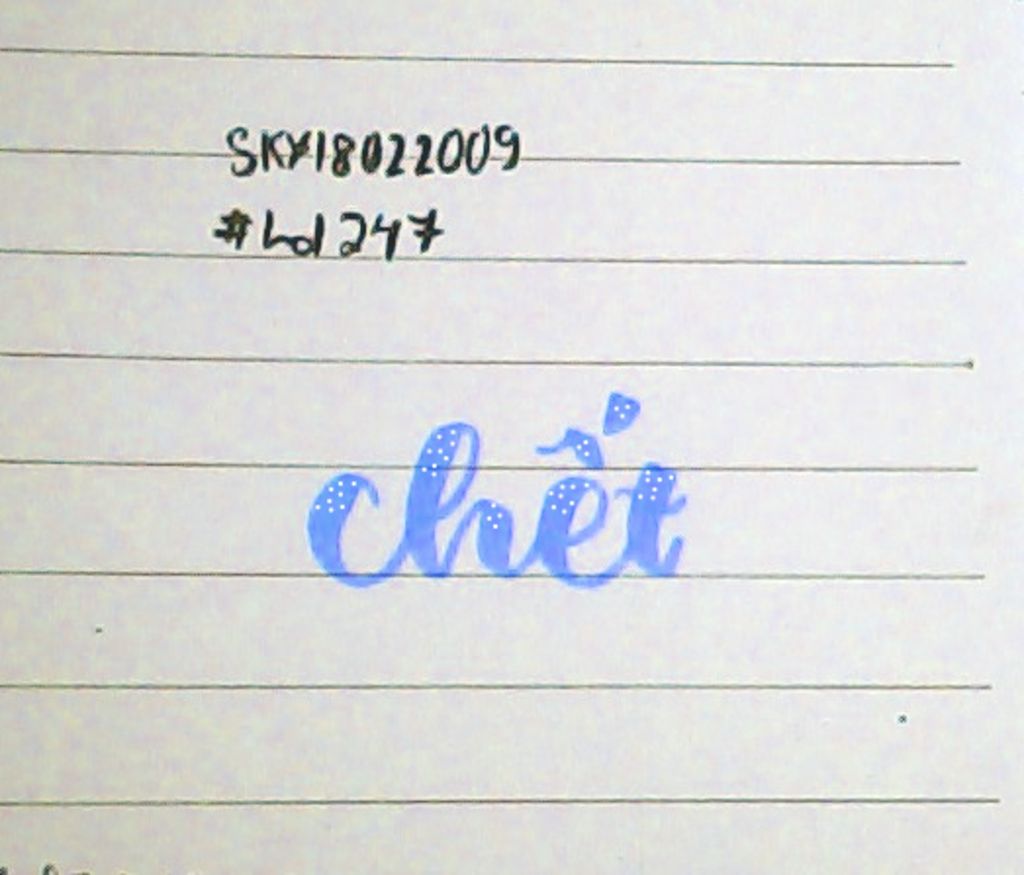 SKY18022009
#hd247
chết